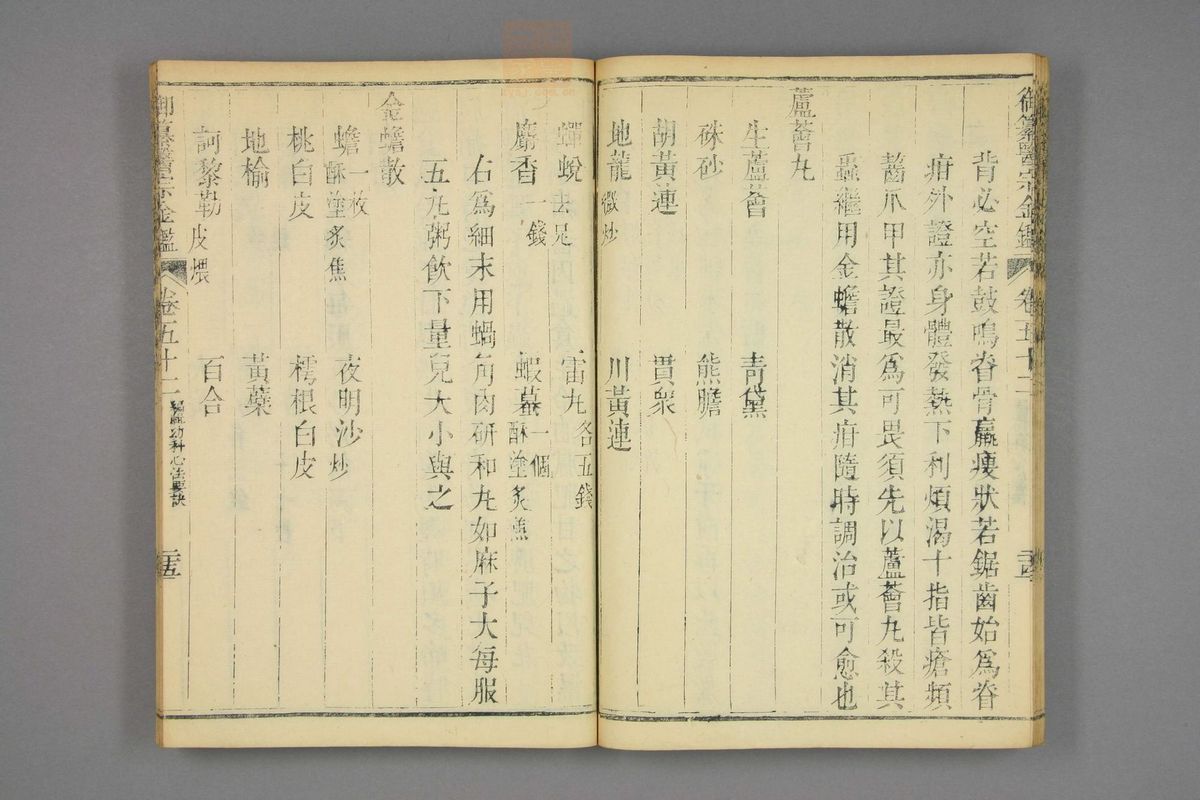 御纂醫宗金鑑 卷五十二
背必空若鼓鳴脊骨羸瘦狀若鋸齒始爲脊
疳外證亦身體發熱下利煩渴十指皆瘡頻
齧爪甲其證最爲可畏須先以蘆薈丸殺其
蟲繼用金蟾散消其疳隨時調治或可愈也
蘆薈丸
生蘆薈 青黛
硃砂 熊膽
胡黃連 貫衆
地龍微炒 川黃連
蟬蛻去足 雷丸各五錢
麝香一錢 蝦蟇一個酥塗炙焦
右爲細末用蝸牛肉研和丸如麻子大每服
五丸粥飲下量兒大小與之
金蟾散
蟾一枚酥塗炙焦 夜明沙炒
桃白皮 樗根白皮
地榆 黃蘗
訶黎勒皮煨 百合
御纂醫宗金鑑 卷五十二 編輯幼科心法要訣 二十五